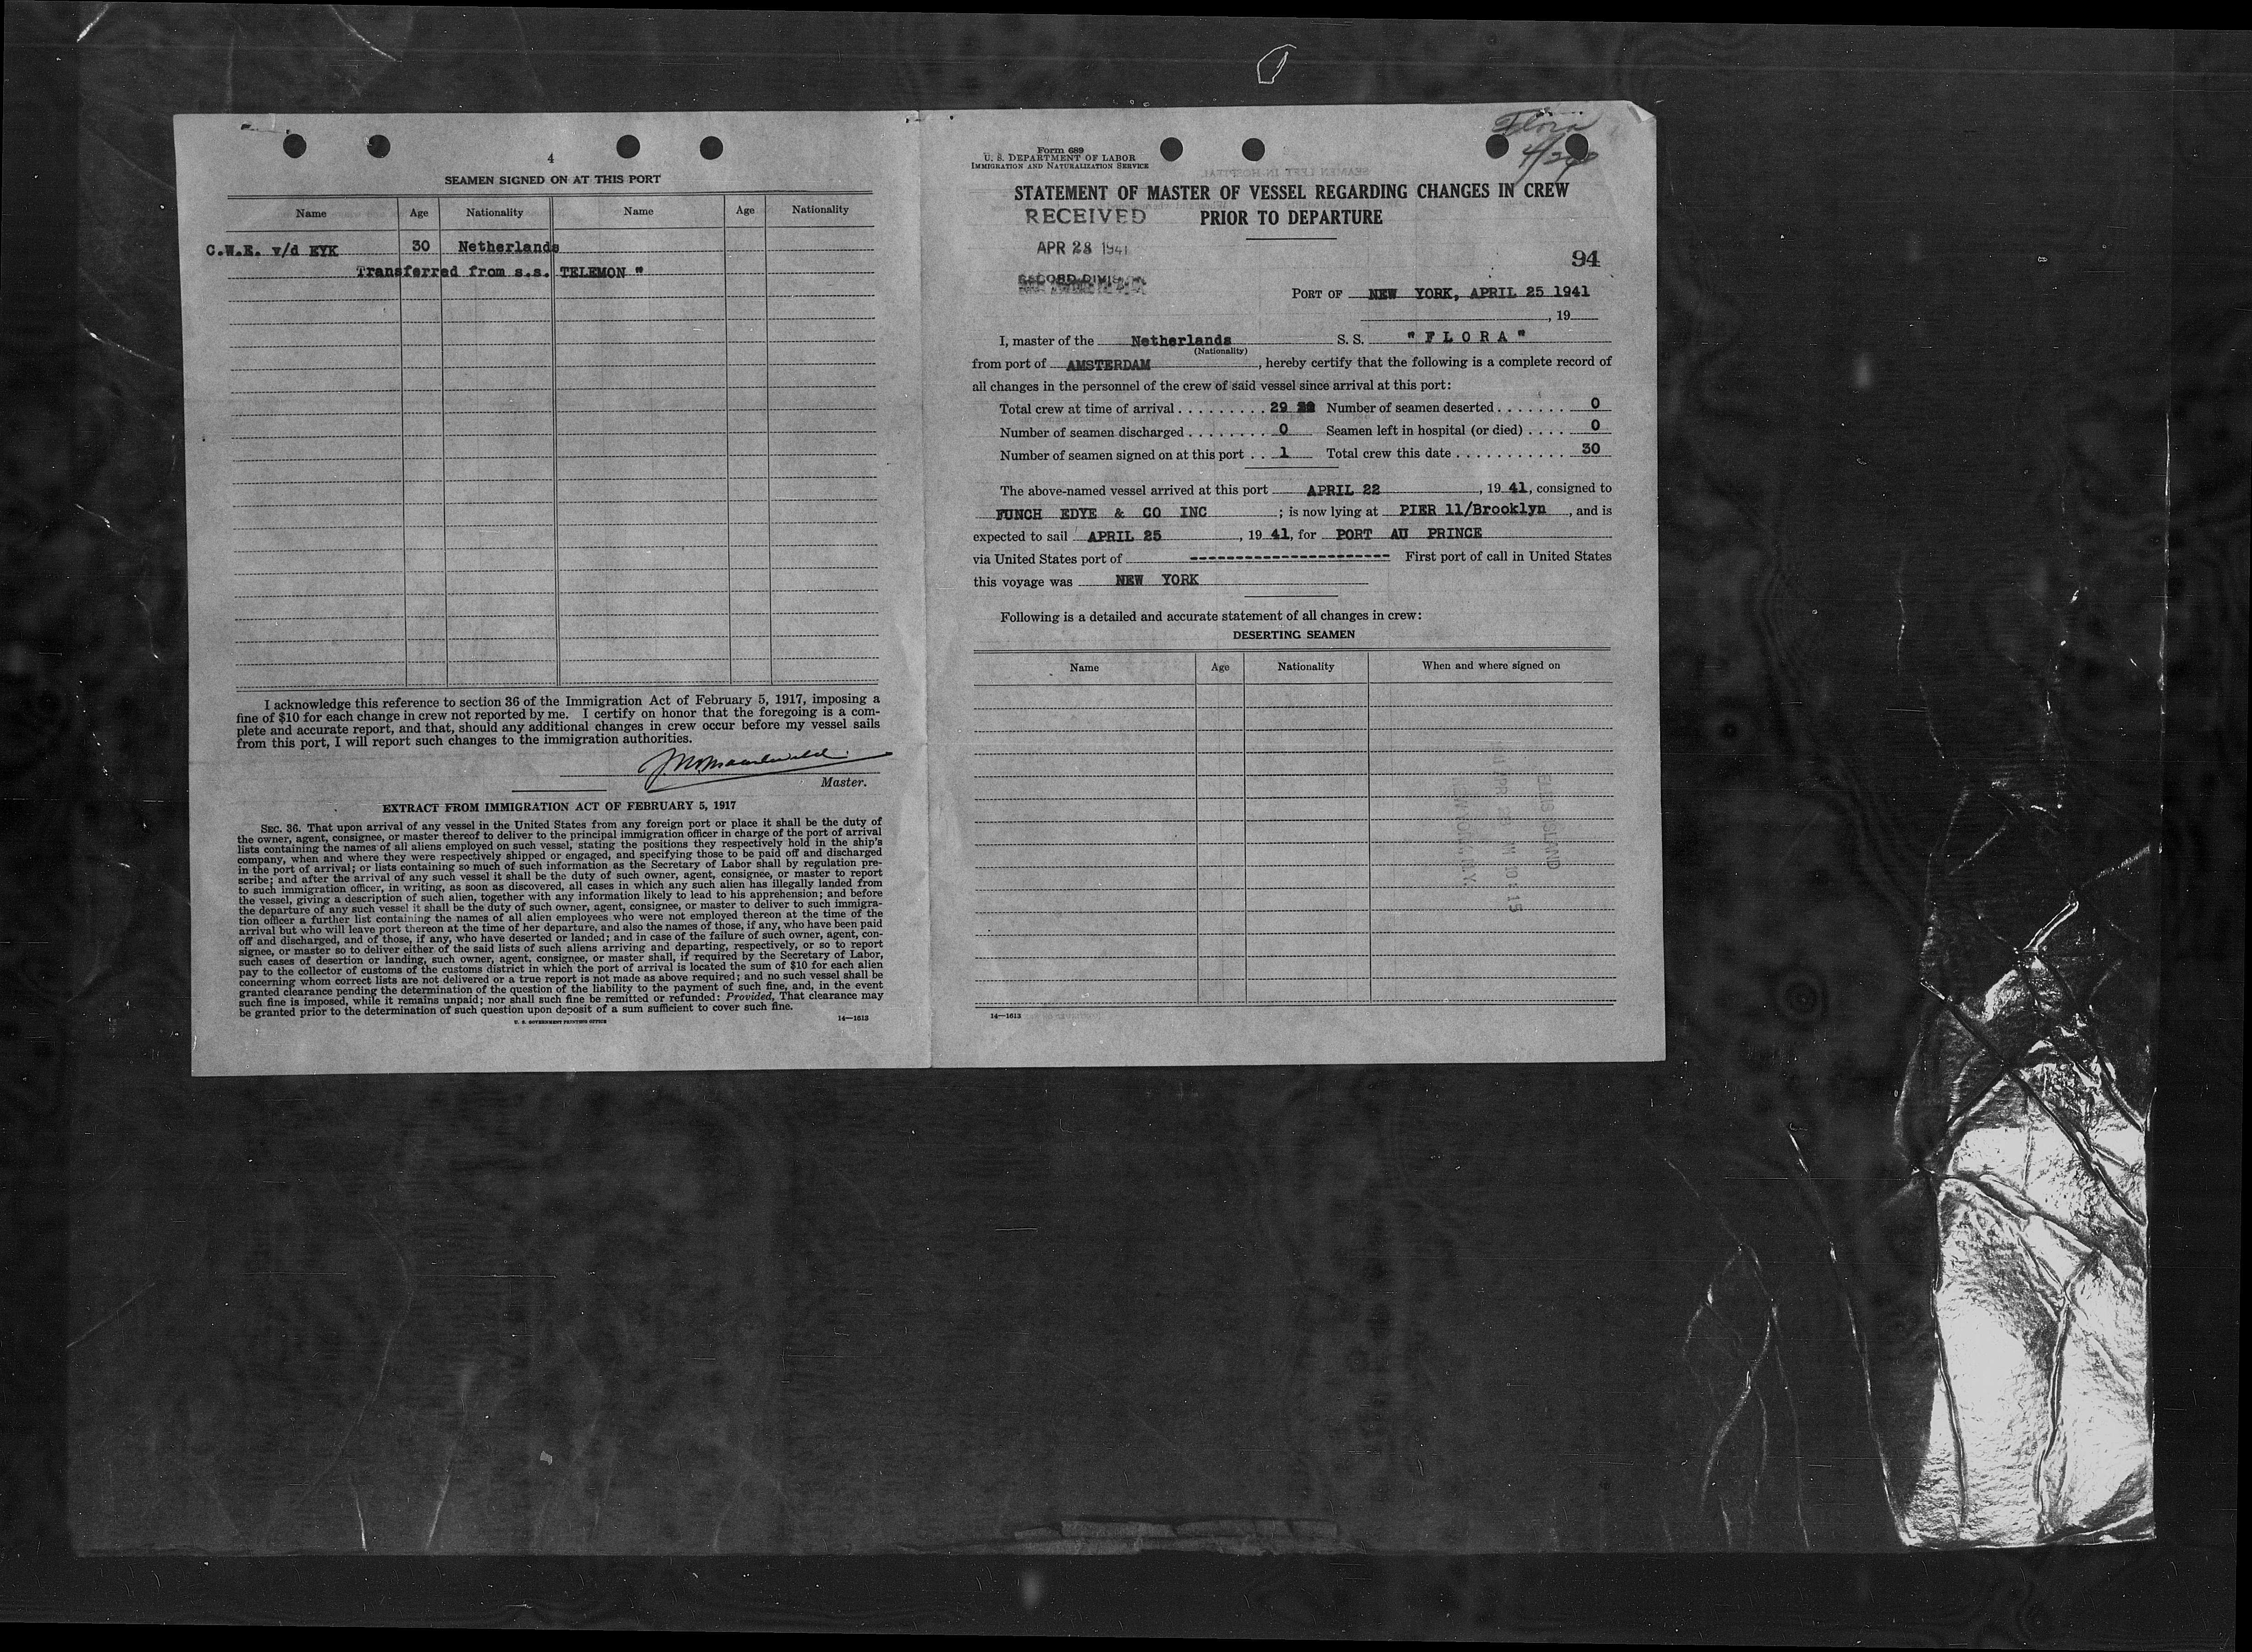 4
SEAMEN SIGNED ON AT THIS PORT
Name Age Nationality Name Age Nationality
C.W.E. v/d EYK 30 Netherlands
Transferred from s.s. TELEMON "
I acknowledge this reference to section 36 of the Immigration Act of February 5, 1917, imposing a
fine of $10 for each change in crew not reported by me. I certify on honor that the foregoing is a com-
plete and accurate report, and that, should any additional changes in crew occur before my vessel sails
from this port, I will report such changes to the immigration authorities.
Master.
EXTRACT FROM IMMIGRATION ACT OF FEBRUARY 5, 1917
SEC. 36. That upon arrival of any vessel in the United States from any foreign port or place it shall be the duty of
the owner, agent, consignee, or master thereof to deliver to the principal immigration officer in charge of the port of arrival
lists containing the names of all aliens employed on such vessel, stating the positions they respectively hold in the ship's
company, when and where they were respectively shipped or engaged, and specifying those to be paid off and discharged
in the port of arrival; or lists containing so much of such information as the Secretary of Labor shall by regulation pre-
scribe; and after the arrival of any such vessel it shall be the duty of such owner, agent, consignee, or master to report
to such immigration officer, in writing, as soon as discovered, all cases in which any such alien has illegally landed from
the vessel, giving a description of such alien, together with any information likely to lead to his apprehension; and before
the departure of any such vessel it shall be the duty of such owner, agent, consignee, or master to deliver to such immigra-
tion officer a further list containing the names of all alien employees who were not employed thereon at the time of the
arrival but who will leave port thereon at the time of her departure, and also the names of those, if any, who have been paid
off and discharged, and of those, if any, who have deserted or landed; and in case of the failure of such owner, agent, con-
signee, or master so to deliver either of the said lists of such aliens arriving and departing, respectively, or so to report
such cases of desertion or landing, such owner, agent, consignee, or master shall, if required by the Secretary of Labor,
pay to the collector of customs of the customs district in which the port of arrival is located the sum of $10 for each alien
concerning whom correct lists are not delivered or a true report is not made as above required; and no such vessel shall be
granted clearance pending the determination of the question of the liability to the payment of such fine, and, in the event
such fine is imposed, while it remains unpaid; nor shall such fine be remitted or refunded: Provided, That clearance may
be granted prior to the determination of such question upon deposit of a sum sufficient to cover such fine.
U. S. GOVERNMENT PRINTING OFFICE 14—1613
Flora
Form 689
U. S. DEPARTMENT OF LABOR
IMMIGRATION AND NATURALIZATION SERVICE
STATEMENT OF MASTER OF VESSEL REGARDING CHANGES IN CREW
PRIOR TO DEPARTURE
RECEIVED
APR 28 1941
RECORD DIVISION
94
PORT OF NEW YORK, APRIL 25 1941
, 19
I, master of the Netherlands S. S. " F L O R A "
(Nationality)
from port of AMSTERDAM , hereby certify that the following is a complete record of
all changes in the personnel of the crew of said vessel since arrival at this port:
Total crew at time of arrival . . . . . . . . . 29 Number of seamen deserted . . . . . . . 0
Number of seamen discharged . . . . . . . . 0 Seamen left in hospital (or died) . . . . 0
Number of seamen signed on at this port . . 1 Total crew this date . . . . . . . . . . . 30
The above-named vessel arrived at this port APRIL 22 , 19 41, consigned to
FUNCH EDYE & CO INC ; is now lying at PIER 11/Brooklyn , and is
expected to sail APRIL 25 , 19 41, for PORT AU PRINCE
via United States port of ---------------------- First port of call in United States
this voyage was NEW YORK
Following is a detailed and accurate statement of all changes in crew:
DESERTING SEAMEN
Name Age Nationality When and where signed on
14—1613